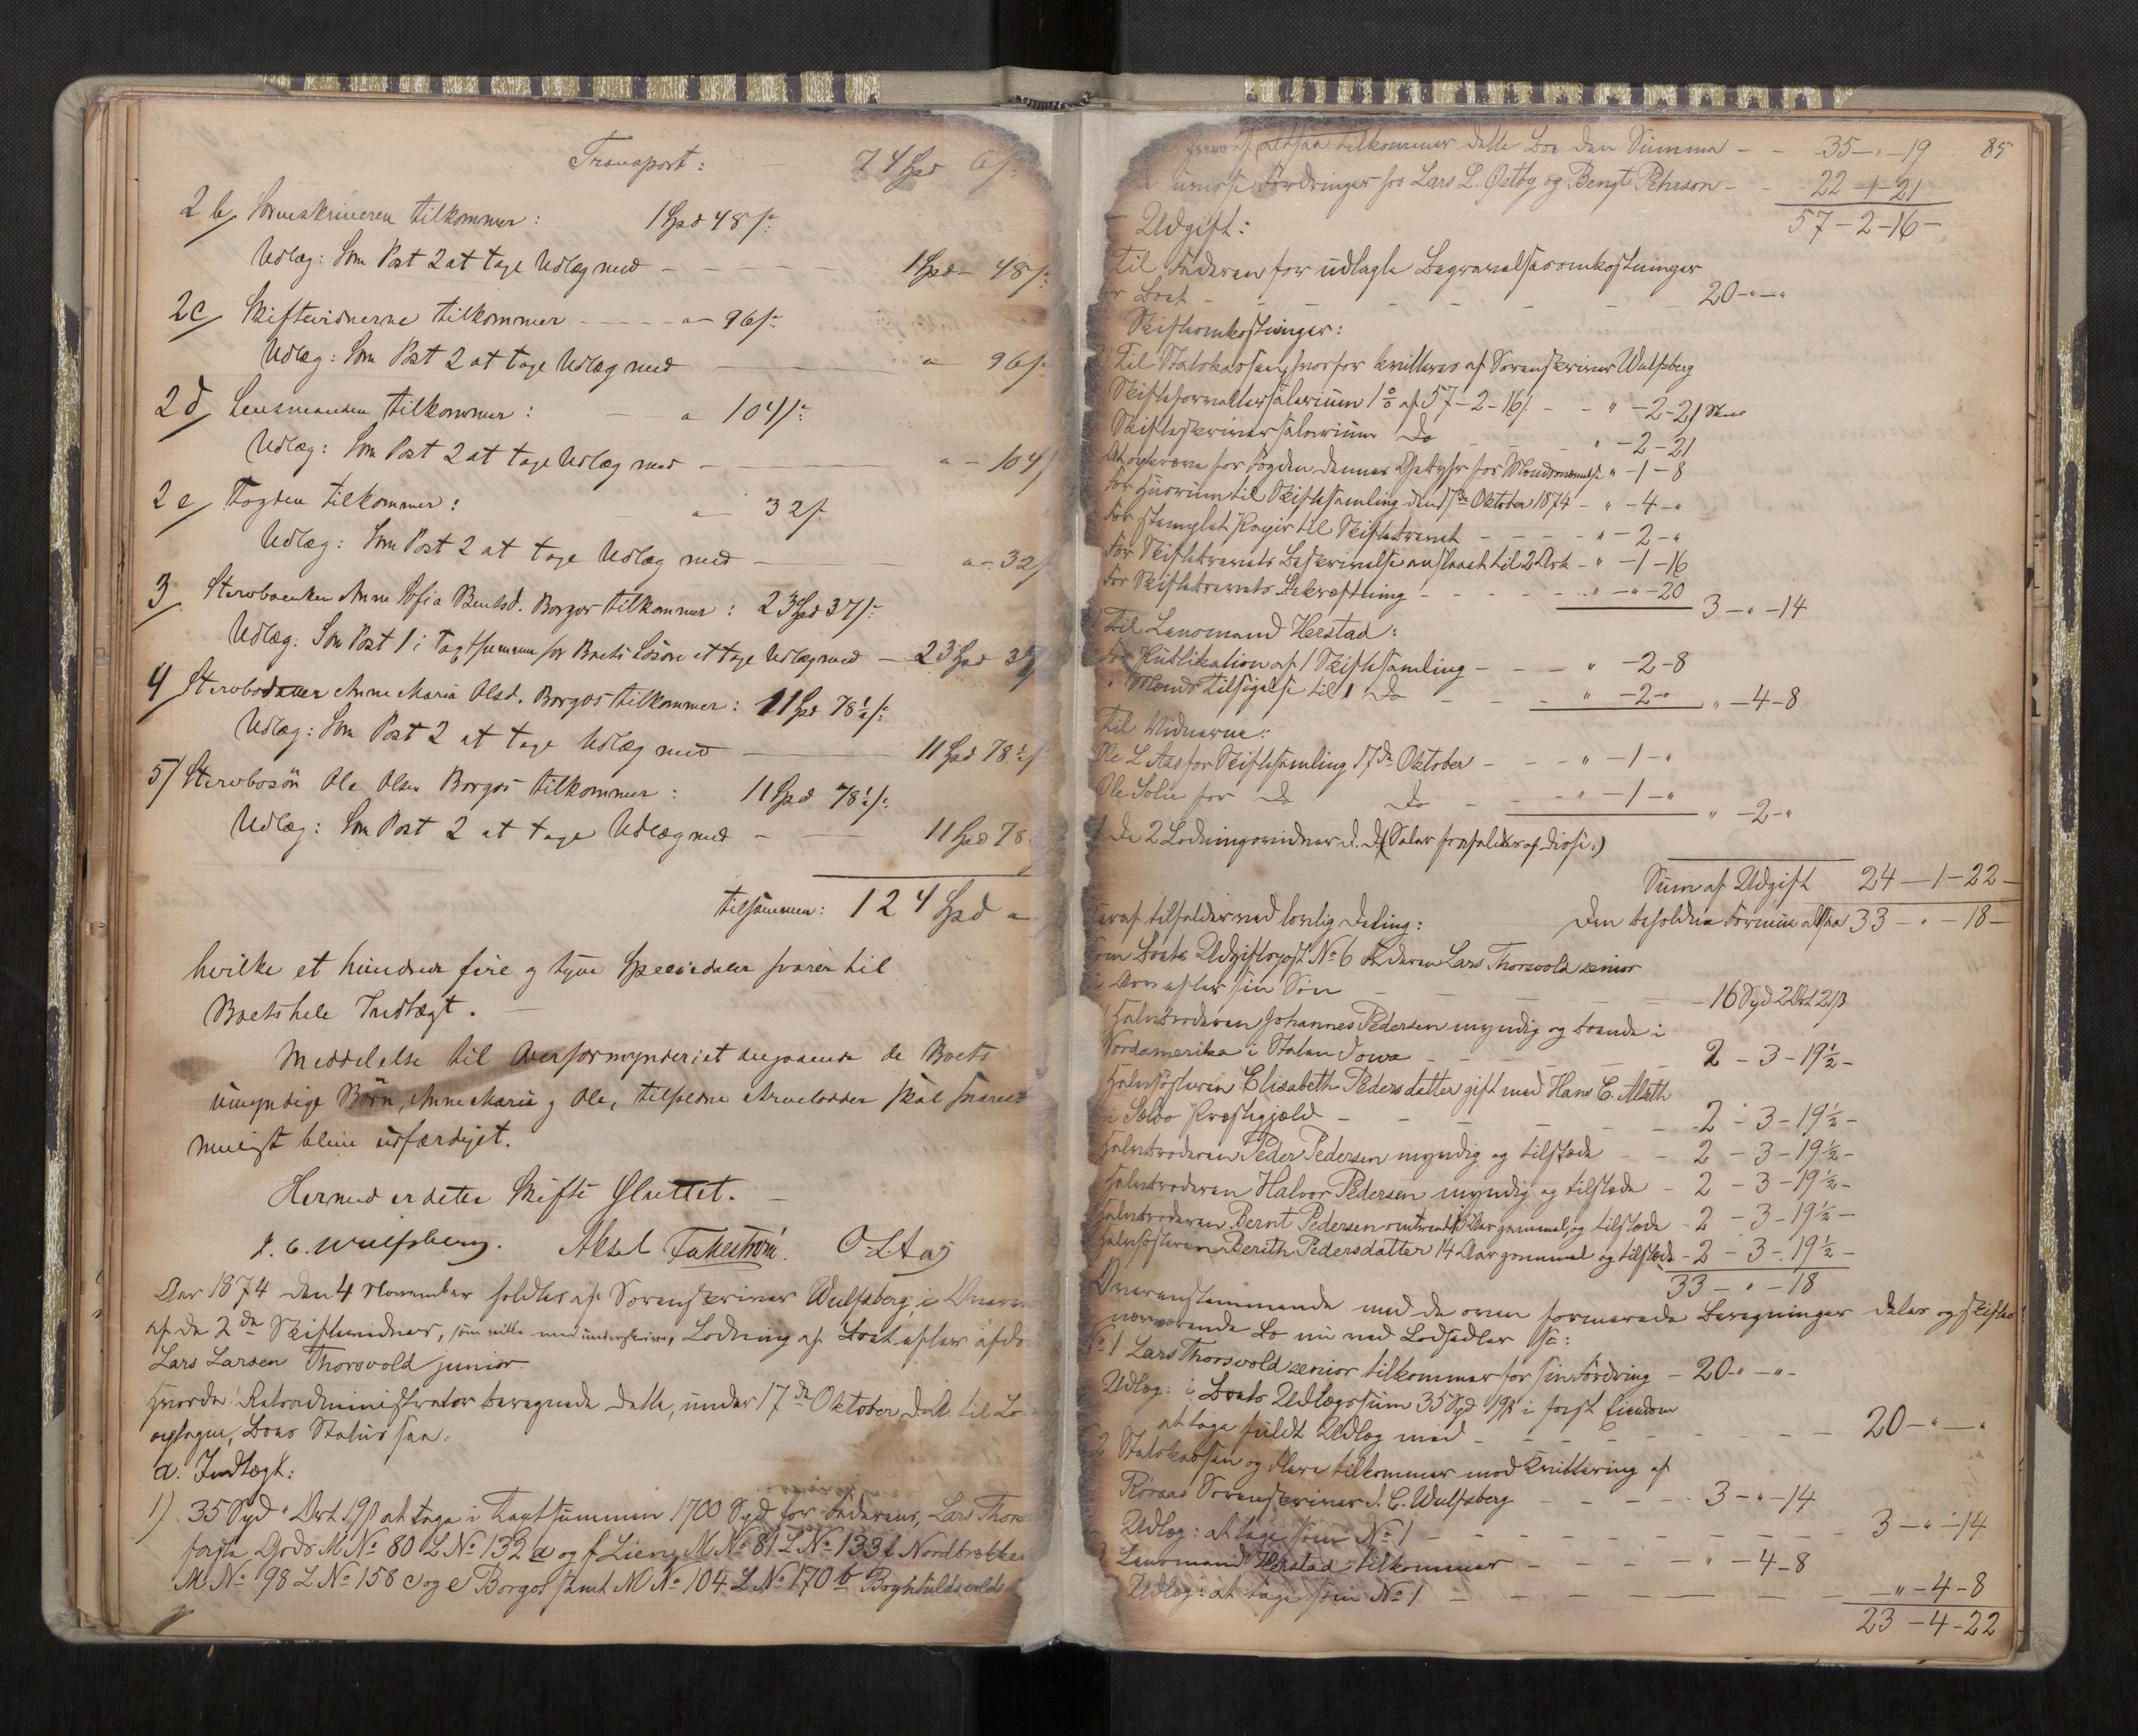 Transport: 74 Spd 6 s:
2 b, Sorenskriveren tilkommer: 1 Spd 48 s:
Udlæg: Som Post 2 at tage Udlæg med - 1 Spd - 48 s:
2c, Skiftevidnerne tilkommer - - - " - 96 s:
Udlæg: Som Post 2 at tage Udlæg med " 96 s
2d, Lensmanden tilkommer: - " 104 s:
Udlæg: Som Post 2 at tage Udlæg med - " - 104
2e, Fogden tilkommer: " 32 s.
Udlæg: Som Post 2 at tage Udlæg med - " - 32
3, Stervboenken Anne Sofia Bentsd. Borgos tilkommer: 23 Spd 37 s:
Udlæg: Som Post 1 i Taxtsummen for Boets Løsøre at tage Udlæg med - 23 Spd 37
4, Stervbodatter Anne Maria Olsd. Borgos tilkommer: 11 Spd 78 ½ s:
Udlæg: Som Post 2 at tage Udlæg med 11 Spd 78 ½ s
5, Stervbosøn Ole Olsen Borgos tilkommer: 11 Spd 78 ½ s:
Udlæg: Som Post 2 at tage Udlæg med - 11 Spd 78
tilsammen: 124 Spd "
hvilke et hundrede fire og tyve Speciedaler svarer til
Boets hele Indtægt.
Meddelelse til Overformynderiet angaaende de Boets
umyndige Børn, Anne Maria og Ole, tilfaldne Arvelodder skal snarest
muligt blive udfærdiget.
Hermed er dette Skifte Sluttet.
J. C. Wulfsberg. Aksel O L Aas
Aar 1874 den 4 November holdtes af Sorenskriver Wulfsberg, i Overvær
af de 2de Skiftevidner, som ville medunderskrive, Lodning af Boet efter afdøde
Lars Larsen Thorsvold junior.
Hvorda: Retsadministrator beregnede dette, under 17de Oktober d. A. til Lo
optagne, Boes Status saa:
a. Indtægt:
1) 35 Spd " Ort 19 s at tage i Taxtsummen 1700 Spd for Faderens, Lars Thors
faste Gods M No 80 L No 132 a og f Lien, M No 81 L No 133 f Nordbrækken
M No 98 L No 158 c og e Borgos samt M No 104 L No 170 b
85
altsaa tilkommer dette Boe den Summa - - 35 - " - 19
Fordringer hos Lars L. Østby og Bengt Pehrson - 22 - 1 - 21
57 - 2 - 16 -
Udgift:
Til Faderen for udlagte Begravelsesomkostninger
for Boet - - - - - - 20 - " - "
Skifteomkostninger:
Til Statskassen, hvorfor kvitteres af Sorenskriver Wulfsberg
Skifteforvaltersalarium 1 % af 57 - 2 - 16 s. - - " - 2 - 21
Skifteskriversalarium do " - 2 - 21
At for Fogden dennes Gebyhr for Mændsopnævnelse " - 1 - 8
For Husrum til Skiftesamling den 17de Oktober 1874 - " - 4 - "
For stemplet Papir til Skiftebrevet - - - " - 2 - "
For Skiftebrevets Beskrivelse anslaaet til 2 Ark - " - 1 - 16
For Skiftebrevets Bekræftning - - - - " - " - 20 3 - " - 14
Til Lensmand Herstad:
For Publikation af 1 Skiftesamling - - - " - 2 - 8
" Mænds Tilsigelse til 1 do - - " - 2 - " " - 4 - 8
Til Vidnerne:
Ole L Aas for Skiftesamling 17de Oktober - - - " - 1 - "
Ole Solie for do do - - " - 1 - " " - 2 - "
De 2 Lodningsvidner d. d.
Sum af Udgift 24 - 1 - 22 -
Den beholdne Formue altsaa 33 - " - 18 -
Heraf tilfalder ved lovlig Deling:
Boets Udgiftspost No 6 Faderen Lars Thorsvold senior
i Arv efter sin Søn - - - - 16 Spd 2 Ort 21 s
Halvbroderen Johannes Pedersen myndig og boende i
Nordamerika i Staten Iowa - - - 2 - 3 - 19 ½ -
Halvsøsteren Elisabeth Pedersdatter gift med Hans E. Aleth
i Sælbo Præstegjæld - - - - 2 - 3 - 19 ½ -
Halvbroderen Peder Pedersen myndig og tilstede - - 2 - 3 - 19 ½ -
Halvbroderen Halvor Pedersen myndig og tilstede - 2 - 3 - 19 ½ -
Halvbroderen Bernt Pedersen omtrent 15 Aar gammel, og tilstede - 2 - 3 - 19 ½ -
Halvsøsteren Berith Pedersdatter 14 Aar gammel og tilstede - 2 - 3 - 19 ½ -
33 - " - 18
Overensstemmende med de oven formerede Beregninger deles og skiftes
nærværende Bo nu med Lodsedler saa:
No 1 Lars Thorsvold senior tilkommer for sin Fordring - 20 - " - " -
Udlæg: i Boets Udlægssum 35 Spd 19 s i fast Eiendom
at tage fuldt Udlæg med - - - - 20 - " - "
2 Statskassen og flere tilkommer mod Kvittering af
Røraas Sorenskriver J. C. Wulfsberg - - - - 3 - " - 14
Udlæg: at tage som No 1 - - - - 3 - " - 14
3 Lensmand Herstad tilkommer - - - - " - 4 - 8
Udlæg: at tage som No 1 - - - - " - 4 - 8
23 - 4 - 22